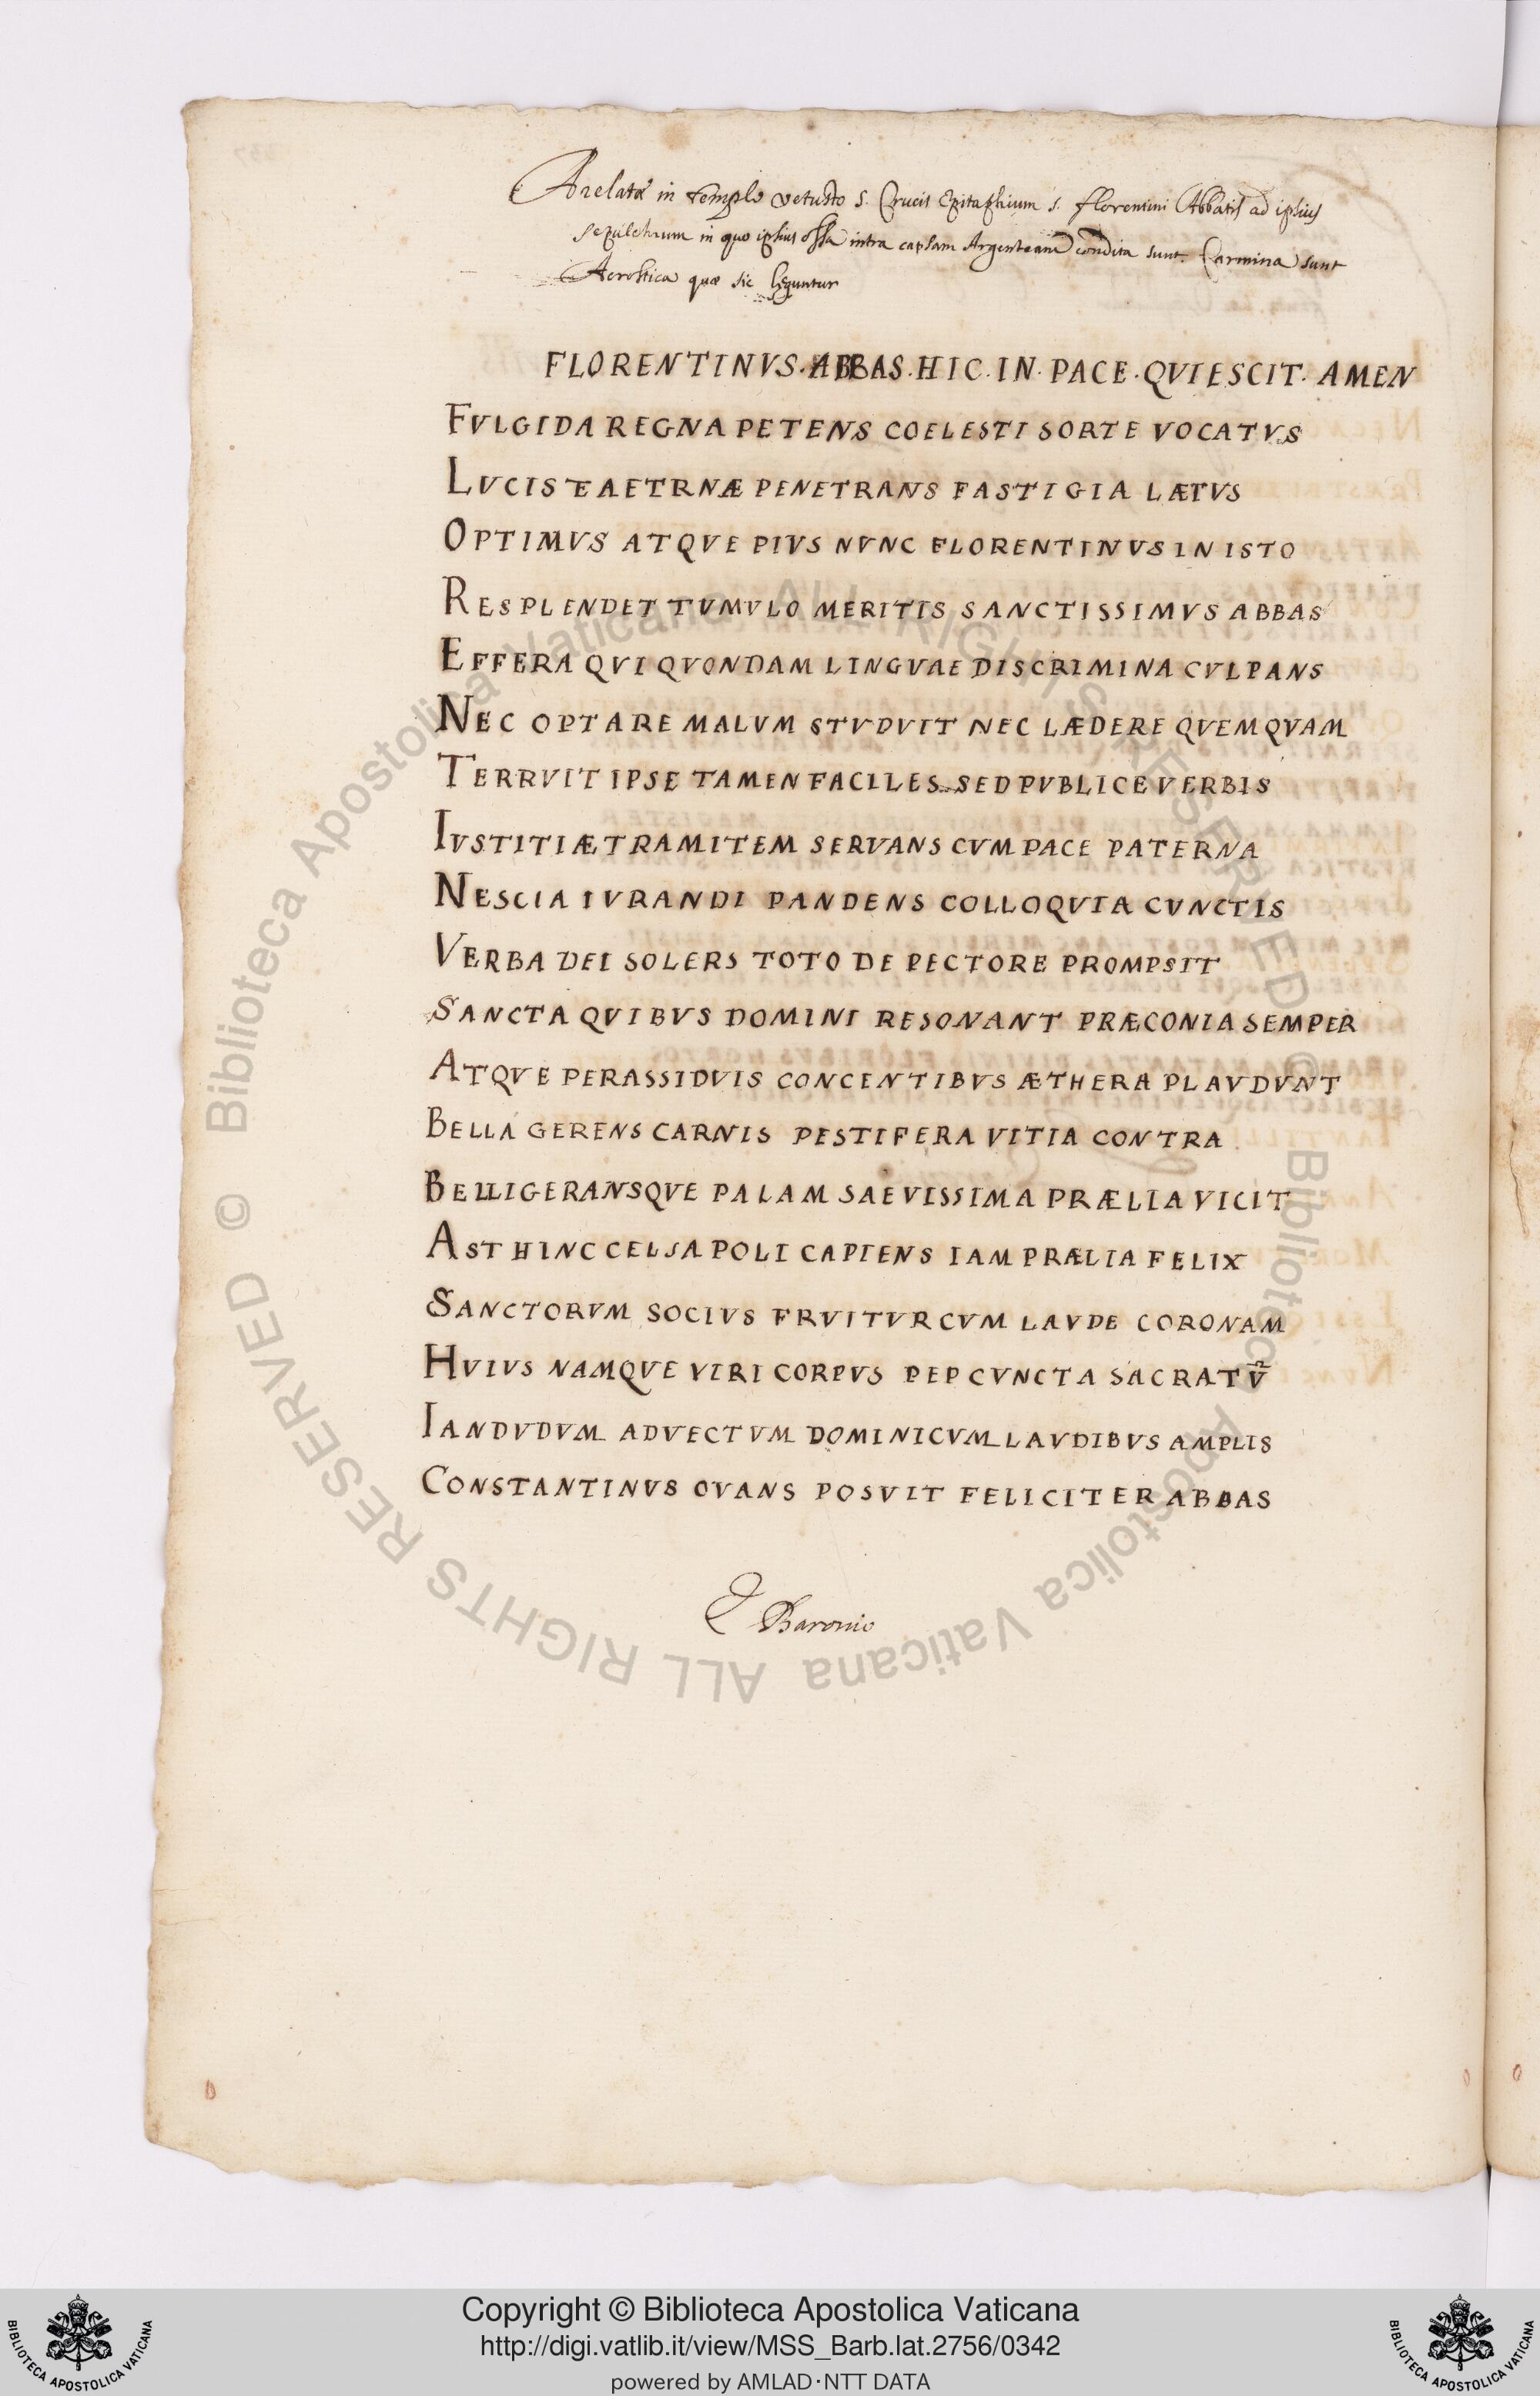 Arelatæ in templo vetusto S. Crucis Epitaphium s. florentini Abbatis ad ipsius
sepulchrum in quo ipsius ossa intra capsam Argenteam condita sunt. Carmina sunt
Acrostica quæ sic leguntur
FLORENTINVS. ABBAS. HIC. IN. PACE. QVIESCIT. AMEN
FVLGIDA REGNA PETENS COELESTI SORTE VOCATVS
LVCIS TEAETRNÆ PENETRANS FASTIGIA LÆTVS
OPTIMVS ATQVE PIVS NVNC FLORENTINVS IN ISTO
RESPLENDET TVMVLO MERITIS SANCTISSIMVS ABBAS
EFFERA QVI QVONDAM LINGVAE DISCRIMINA CVLPANS
NEC OPTARE MALVM STVDVIT NEC LÆDERE QVEMQVAM
TERRVIT IPSE TAMEN FACILES SED PVBLICE VERBIS
IVSTITIÆ TRAMITEM SERVANS CVM PACE PATERNA
NESCIA IVRANDI PANDENS COLLOQVIA CVNCTIS
VERBA DEI SOLERS TOTO DE PECTORE PROMPSIT
SANCTA QVIBVS DOMINI RESONANT PRÆCONIA SEMPER
ATQVE PERASSIDVIS CONCENTIBVS ÆTHERA PLAVDVNT
BELLA GERENS CARNIS PESTIFERA VITIA CONTRA
BELLIGERANSQVE PALAM SAEVISSIMA PRÆLIA VICIT
AST HINC CELSA POLI CAPIENS IAM PRÆLIA FELIX
SANCTORVM SOCIVS FRVITVR CVM LAVDE CORONAM
HVIVS NAMQVE VIRI CORPVS PEP CVNCTA SACRATV̄
IANDVDVM ADVECTVM DOMINICVM LAVDIBVS AMPLIS
CONSTANTINVS OVANS POSVIT FELICITER ABBAS
Baronio
© Biblioteca Apostolica Vaticana ALL RIGHTS RESERVED © Biblioteca Apostolica Vaticana ALL RIGHTS RESERVED
Copyright © Biblioteca Apostolica Vaticana
http://digi.vatlib.it/view/MSS_Barb.lat.2756/0342
powered by AMLAD·NTT DATA
BIBLIOTECA APOSTOLICA VATICANA
BIBLIOTECA APOSTOLICA VATICANA